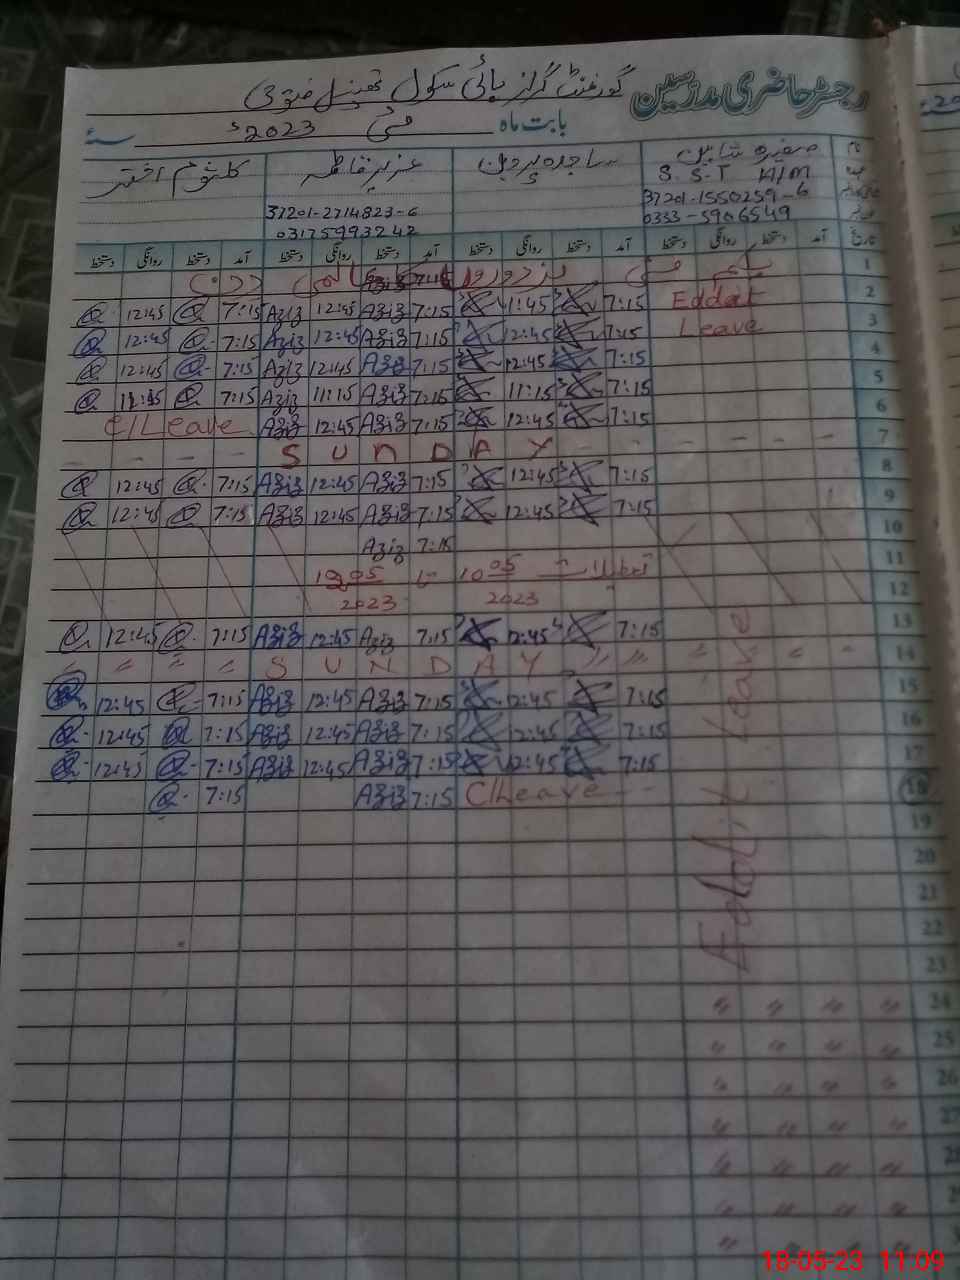 رجسٹر حاضری مدرسین گورنمنٹ گرلز ہائی سکول
بابت ماہ مئی 2023ء سنہ
نام صغیرہ شاہین ساجدہ پروین عزیز فاطمہ کلثوم اختر
S.S.T H/M
37201-1550259-6 37201-2714823-6
0333-5906549 03175993242
تاریخ آمد دستخط روانگی دستخط آمد دستخط روانگی دستخط آمد دستخط روانگی دستخط آمد دستخط روانگی دستخط
1 یکم مئی
2 Eddat 7:15 1:45 7:15 Aziz 12:45 Aziz 7:15 12:45
3 Leave 7:15 12:45 7:15 Aziz 12:45 Aziz 7:15 12:45
4 7:15 12:45 7:15 Aziz 12:45 Aziz 7:15 12:45
5 7:15 11:15 7:15 Aziz 11:15 Aziz 7:15 11:15
6 7:15 12:45 7:15 Aziz 12:45 Aziz C/Leave
7 SUNDAY
8 7:15 12:45 7:15 Aziz 12:45 Aziz 7:15 12:45
9 7:15 12:45 7:15 Aziz 12:45 Aziz 7:15 12:45
10 7:15 Aziz
11 تعطیلات 10 05 2023 تا 05 2023
12
13 7:15 12:45 7:15 Aziz 12:45 Aziz 7:15 12:45
14 SUNDAY
15 7:15 12:45 7:15 Aziz 12:45 Aziz 7:15 12:45
16 7:15 12:45 7:15 Aziz 12:45 Aziz 7:15 12:45
17 7:15 12:45 7:15 Aziz 12:45 Aziz 7:15 12:45
18 C/Leave 7:15 Aziz 7:15
Eddat Leave
19
20
21
22
23
24 " " " "
25 " " " "
26 " " " "
27 " " " "
28 " " " "
" " " "
" " " "
18-05-23 11:09